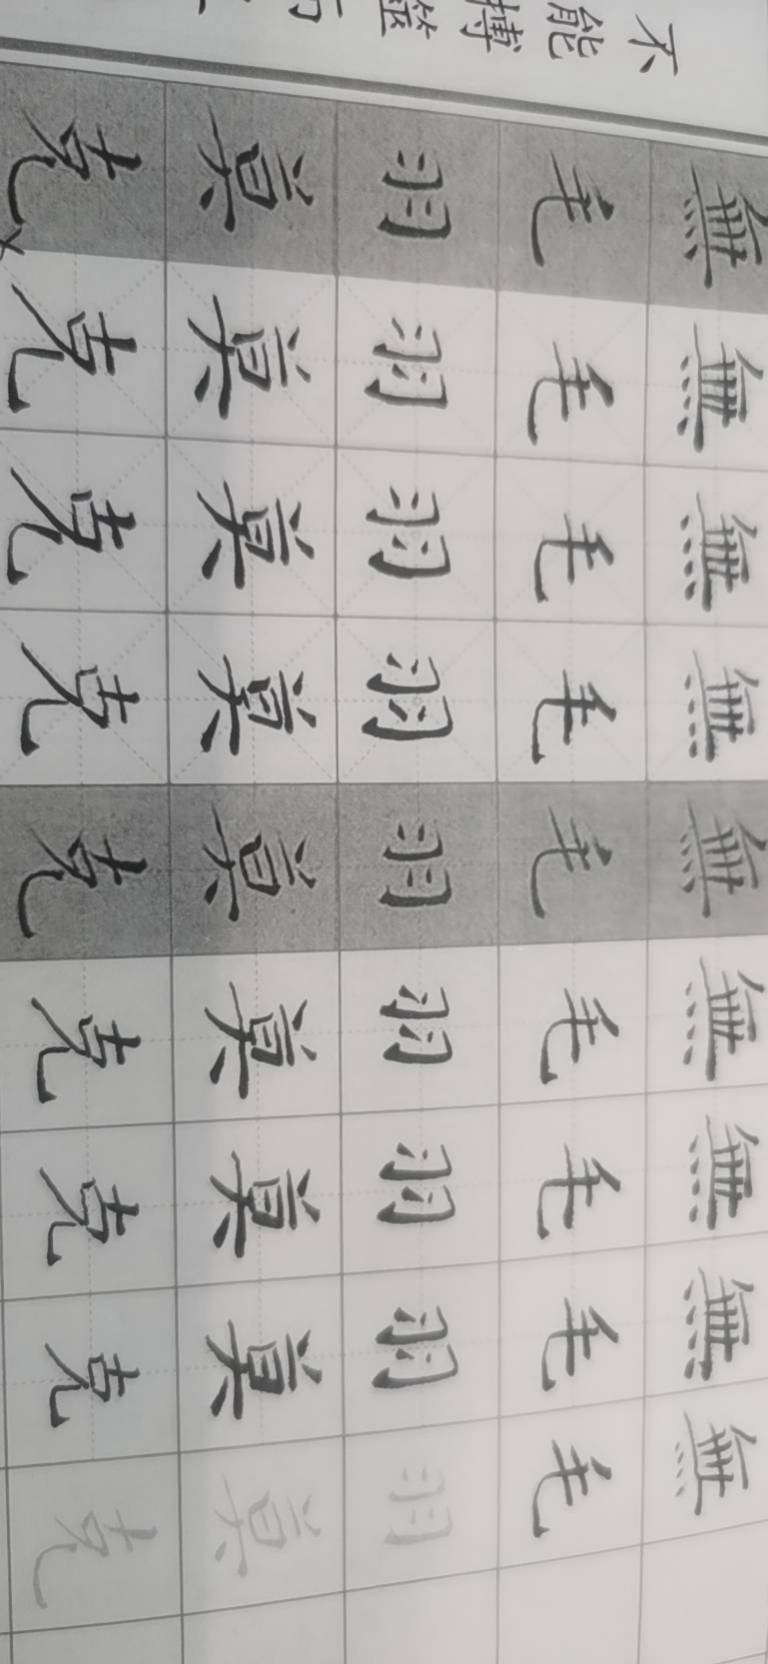 不能搏噬而
無毛羽莫克
無毛羽莫克
無毛羽莫克
無毛羽莫克
無毛羽莫克
無毛羽莫克
無毛羽莫克
無毛羽莫克
無毛羽莫克